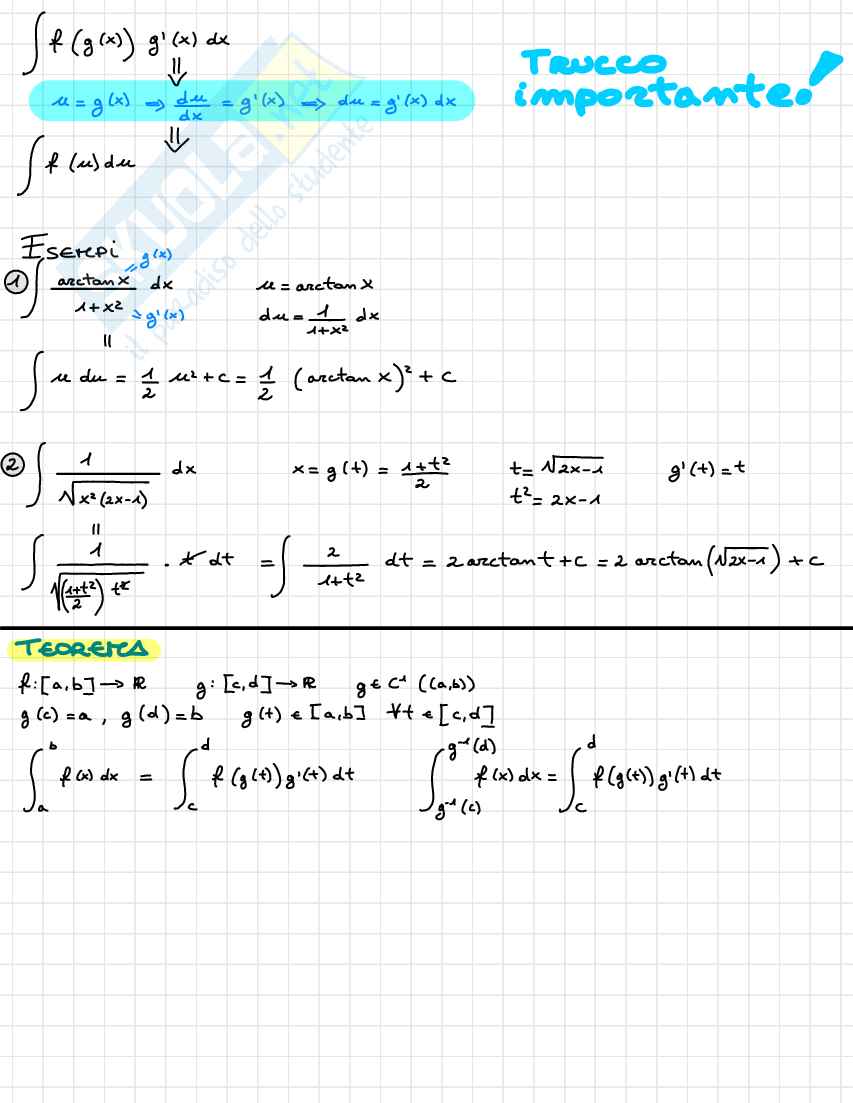 ∫ f(g(x)) g'(x) dx
TRUCCO
importante!
||
u = g(x) ⇒ du/dx = g'(x) ⇒ du = g'(x) dx
||
∫ f(u) du
SKUOLA.net
il paradiso dello studente
ESEMPI
① ∫ arctan x / 1+x² dx = g(x) = g'(x) u = arctan x
du = 1/1+x² dx
||
∫ u du = 1/2 u² + c = 1/2 (arctan x)² + c
② ∫ 1/√x²(2x-1) dx x = g(t) = 1+t²/2 t = √2x-1 g'(t) = t
t² = 2x-1
||
∫ 1/√(1+t²/2) t² · t dt = ∫ 2/1+t² dt = 2 arctan t + c = 2 arctan(√2x-1) + c
TEOREMA
f: [a,b] → ℝ g: [c,d] → ℝ g ∈ C¹ ((a,b))
g(c) = a, g(d) = b g(t) ∈ [a,b] ∀t ∈ [c,d]
∫_a^b f(x) dx = ∫_c^d f(g(t)) g'(t) dt ∫_{g⁻¹(c)}^{g⁻¹(d)} f(x) dx = ∫_c^d f(g(t)) g'(t) dt